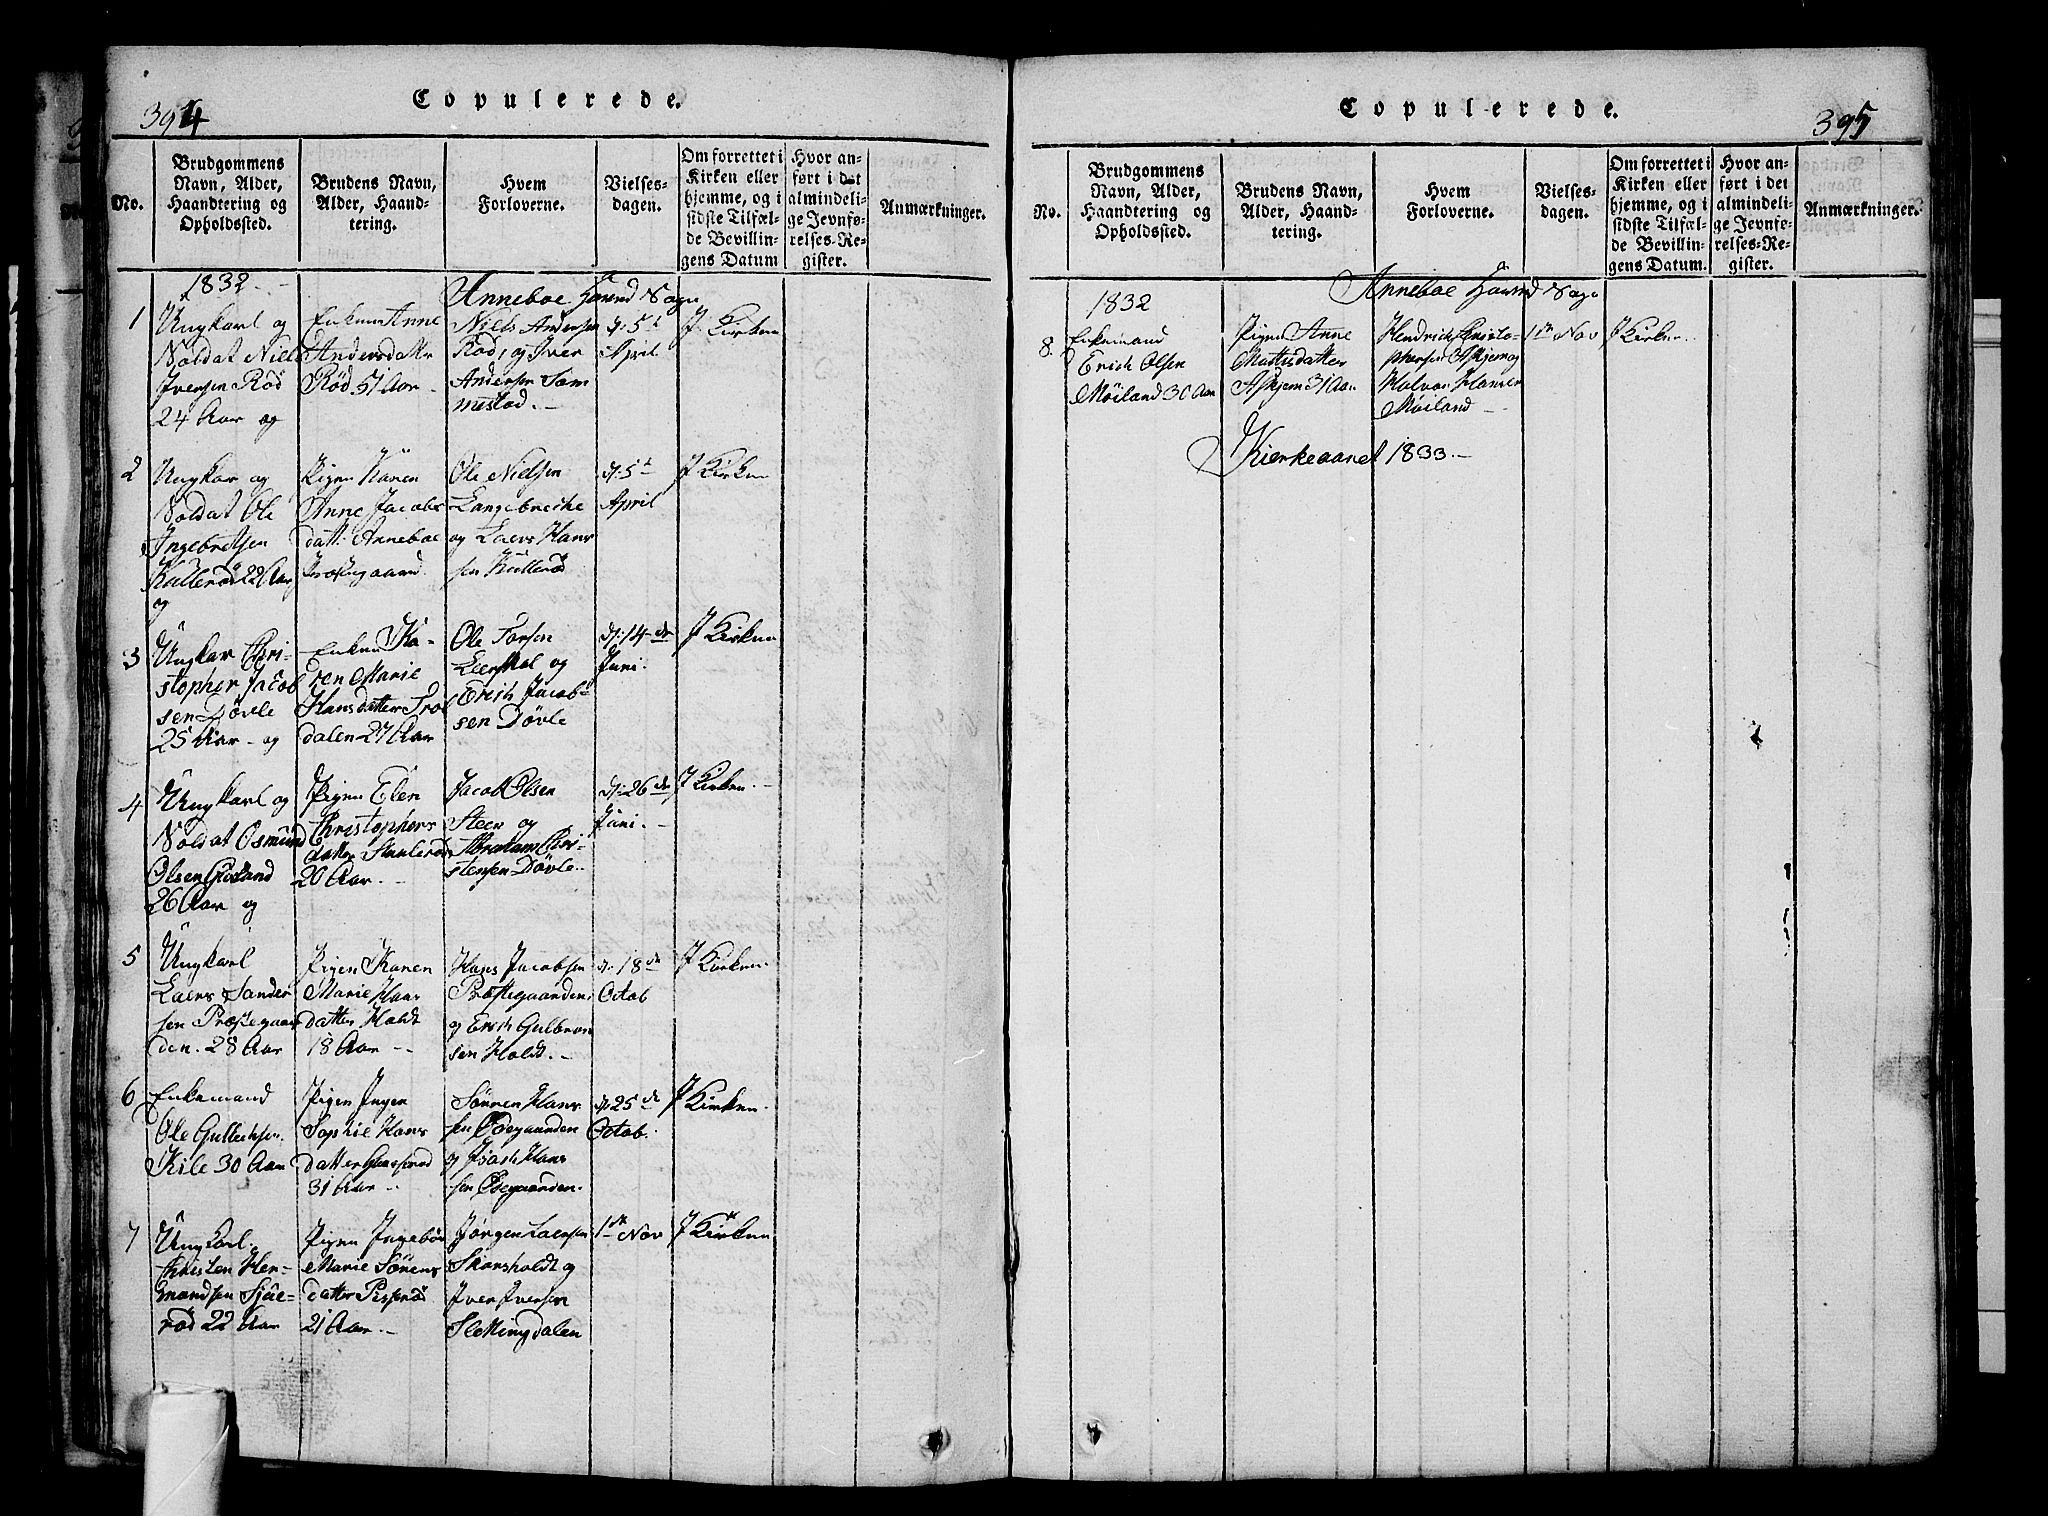 394
Copulerede.
No.
Brudgommens
Navn, Alder,
Haandtering og
Opholdssted.
Brudens Navn,
Alder, Haand-
tering.
Hvem
Forloverne.
Vielses-
dagen.
Om forrettet i
Kirken eller
hjemme, og i
sidste Tilfæl-
de Bevillin-
gens Datum
Hvor an-
ført i det
almindeli-
ge Jevnfø-
relses-Re-
gister.
Anmærkninger.
1832
Anneboe Hoved Sogn
1
Ungkarl og
Soldat Niels
Iversen Röd
24 Aar og
Enken Anne
Andersdattr
Röd 51 Aar
Niels Andersen
Röd, og Iver
Andersen Som
mestad.
d: 5t
April
I Kirken
2
Ungkar og
Soldat Ole
Ingebretsen
Kullerød 22 Aar
og
Pigen Karen
Anne Jacobs
datt: Anneboe
Præstegaard.
Ole Nielsen
Langebreche
og Laers Hans
sen Kullerød
d: 5t
April
I Kirken
3
Ungkar Chri-
stopher Jacob
sen Døvle
25 Aar og
Enken Ka-
ren Marie
Hansdatter Trol
dalen 27 Aar
Ole Torsen
Laerskal og
Erich Jacob
sen Døvle
d: 14de
Juni.
I Kirken
4
Ungkarl og
Soldat Osmund
Olsen
26 Aar og
Pigen Elen
Christophers
datter
20 Aar.
Jacob Olsen
Steen og
Abraham Chri-
stensen Døvle.
d: 26de
Juni.
I Kirken.
5
Ungkarl
Laers Sander
sen Præstegaar
den. 28 Aar
Pigen Karen
Marie Hans
datter Holdt
18 Aar
Hans Jacobsen
Præstegaarden
og Erich Gulbran
sen Holdt.
d: 18de
Octob
I Kirken.
6
Enkemand
Ole Gullichsen
Kile 30 Aar
Pigen Inger
Sophie Hans
datter
31 Aar
Sörren Hans
sen Ödegaarden
og Isach Hans
sen Ödegaarden.
d: 25de
Octob.
I Kirken.
7
Ungkarl.
Christen Her-
mandsen Sjue-
rød 22 Aar
Pigen Ingebör
Marie Sörens
datter
21 Aar.
Jörgen Laersen
Skarsholdt og
Iver Iversen
Slettingdalen
1ste Nov
I Kirken
Copulerede.
395
No.
Brudgommens
Navn, Alder,
Haandtering og
Opholdssted.
Brudens Navn,
Alder, Haand-
tering.
Hvem
Forloverne.
Vielses-
dagen.
Om forrettet i
Kirken eller
hjemme, og i
sidste Tilfæl-
de Bevillin-
gens Datum.
Hvor an-
ført i det
almindeli-
ge Jevnfø-
relses-Re-
gister.
Anmærkninger.
1832
Anneboe Hoved Sogn
8.
Enkemand
Erich Olsen
Möiland 30 Aar
Pigen Anne
Mattisdatter
Askjem 31 Aar
Hendrich Christo-
phersen Askjem og
Halvor Hansen
Möiland
1ste Nov
I Kirken.
Kierkeaaret 1833.